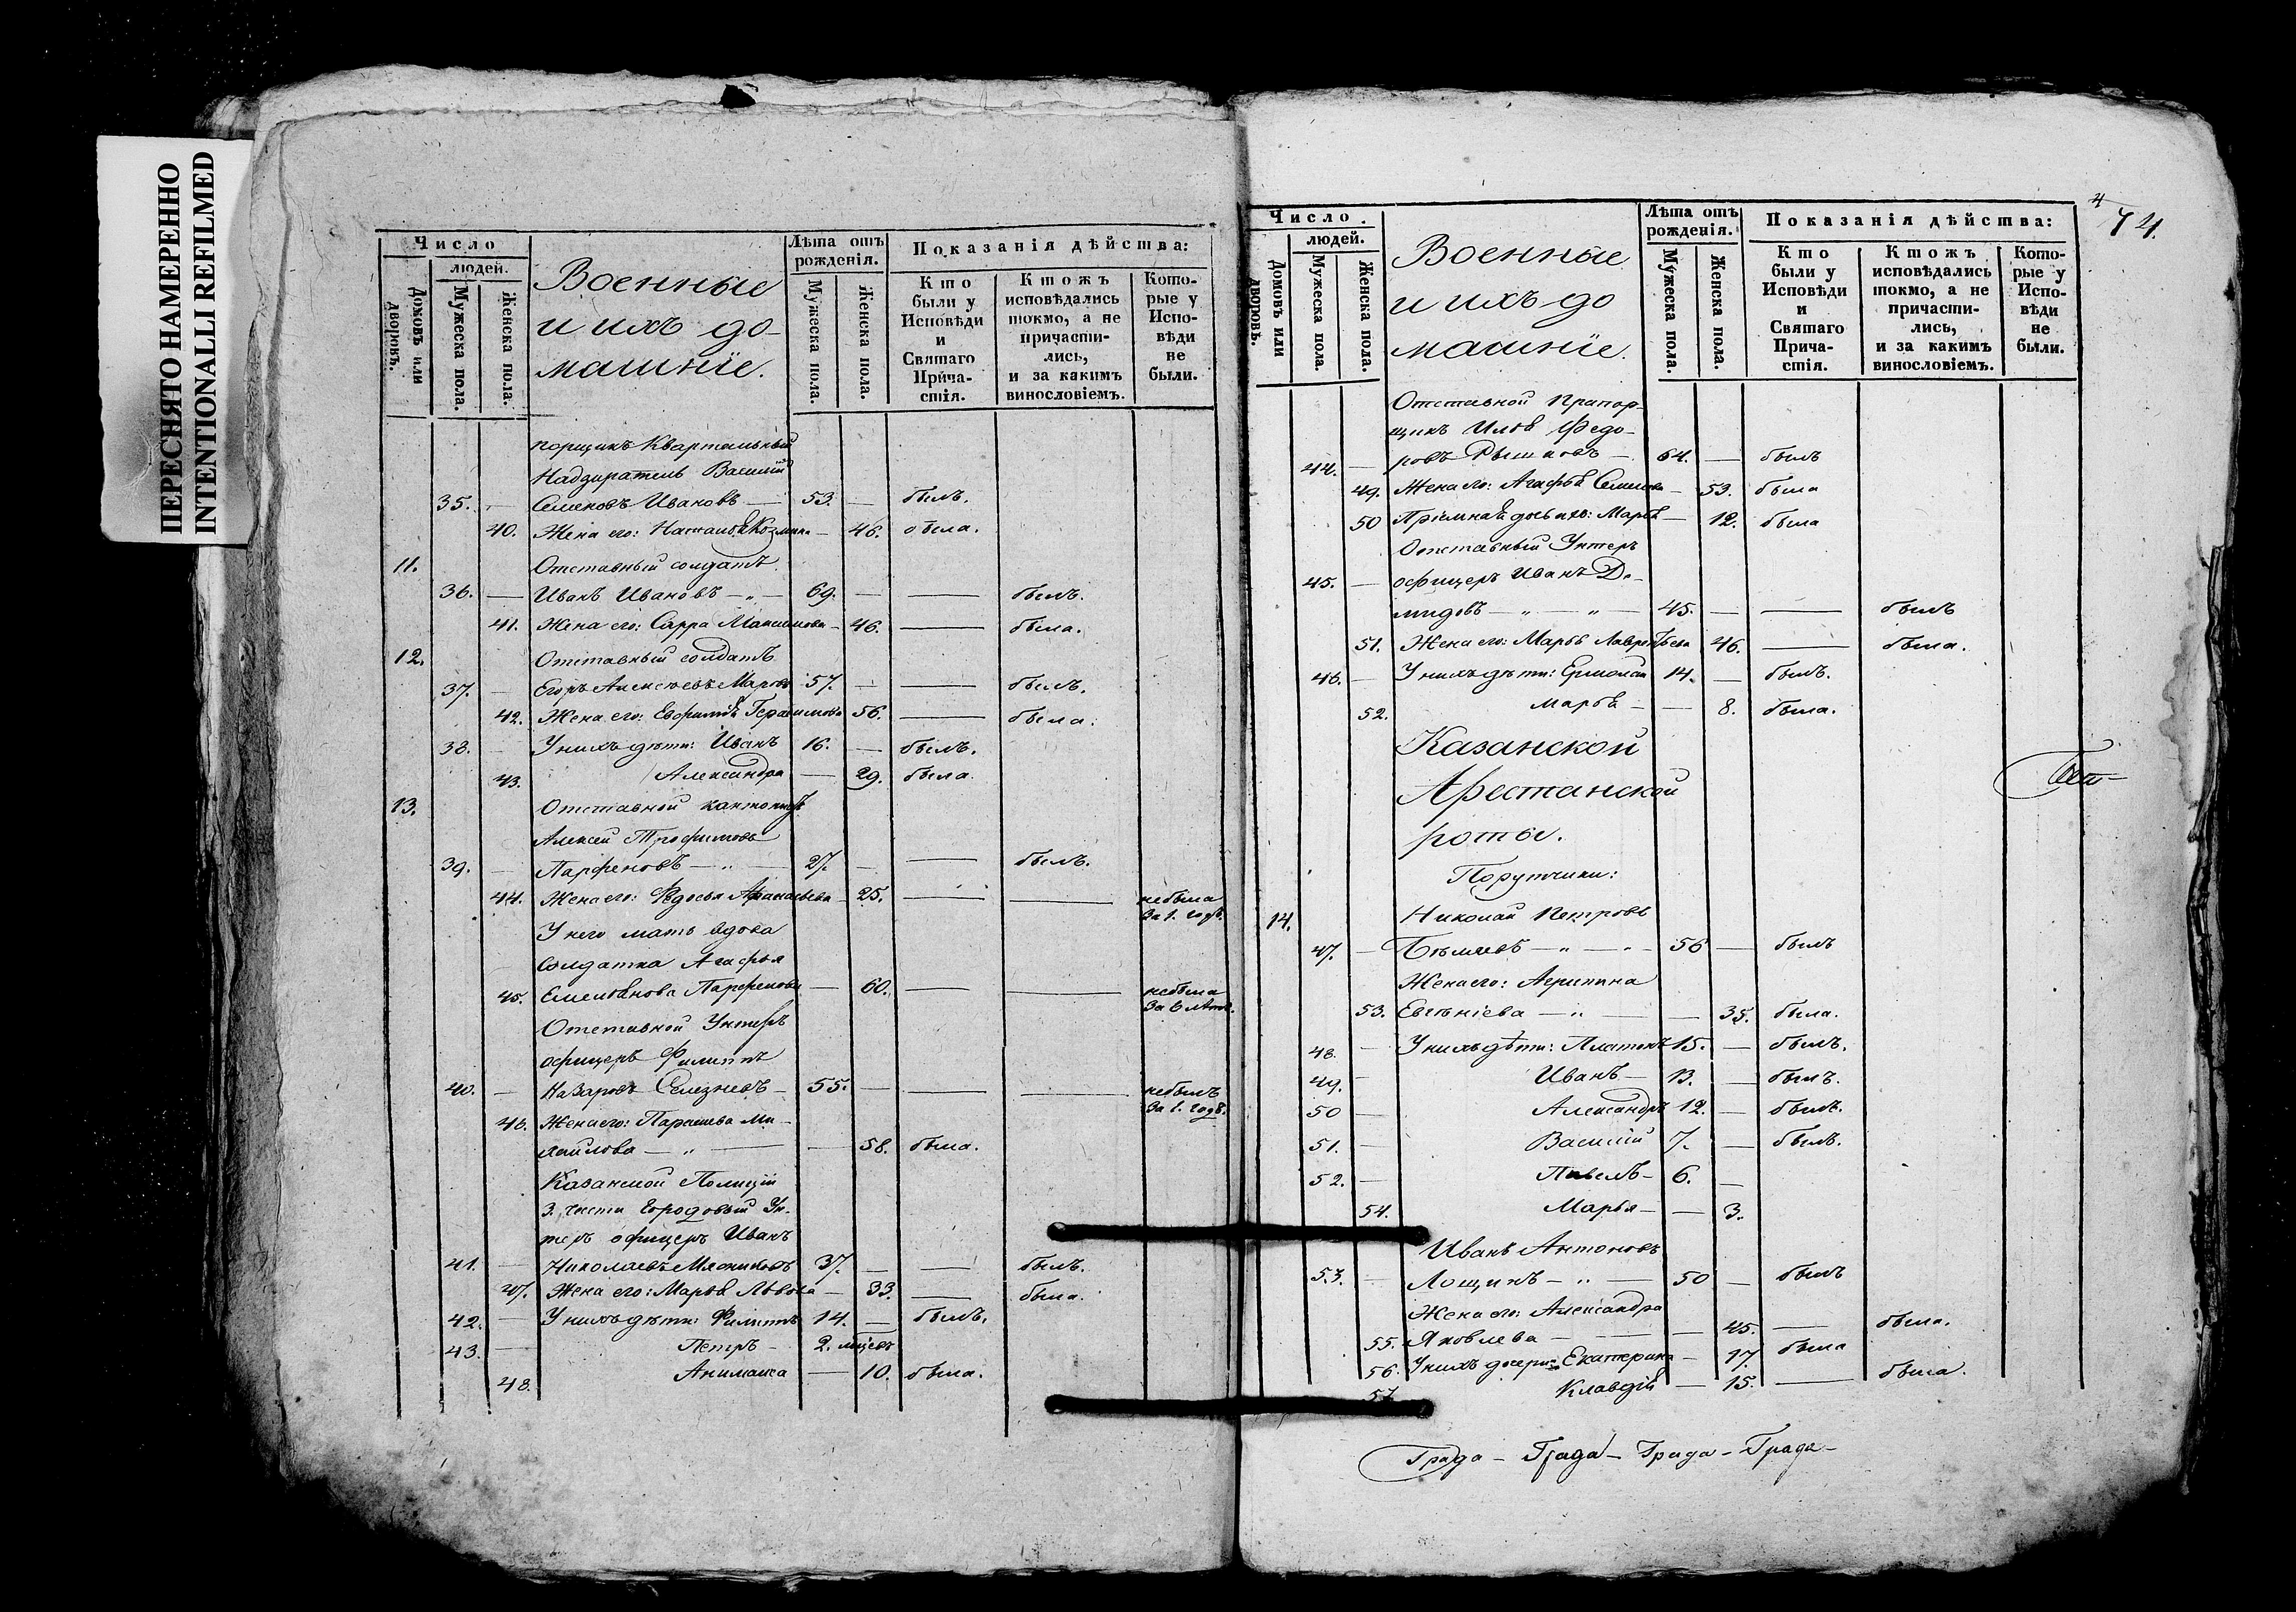 ПЕРЕСНЯТО НАМЕРЕННО
INTENTIONALLI REFILMED
Число
людей.
Домовъ или дворовъ.
Мужеска пола.
Женска пола.
Военные
и ихъ до-
машніе.
Лѣта отъ рожденія.
Мужеска пола.
Женска пола.
Показанія дѣйства:
Кто были у Исповѣди и Святаго Прича-стія.
Ктожъ исповѣдались токмо, а не причасти-лись, и за какимъ винословіемъ.
Кото-рые у Испо-вѣди не были.
порщикъ Квартальный
Надзиратель Василій
35. — Семеновъ Ивановъ — 53. — былъ.
40. Жена его: Наталья Козмина — 46. была.
11. Отставный солдатъ
36. — Иванъ Ивановъ — „ — 69. — — былъ.
41. Жена его: Сарра Максимова — 46. — была.
12. Отставный солдатъ
37. — Егоръ Алексѣевъ Марковъ 57. — — былъ.
42. Жена его: Евфимія Герасимова 56. — была.
38. — У нихъ дѣти: Иванъ 16. — былъ.
43. Александра — 29. была.
13. Отставной кантонистъ
Алексей Трофимовъ
39. — Парфеновъ — „ — 27. — — былъ.
44. Жена его: Федосья Афанасьева — 25. — — небыла
за 1. годъ.
У него мать вдова
Солдатка Агафья
45. Емельянова Парфенова — 60. — — небыла
за 6 лѣтъ.
Отставной Унтеръ
офицеръ Филиппъ
40. — Назаровъ Селезневъ — 55. — — — небылъ
за 1. годъ.
46. Жена его: Парасковья Ми-
хайлова — „ — — 58. была.
Казанской Полиціи
3. части Городовый Ун-
теръ офицеръ Иванъ
41. — Николаевъ Мясниковъ 37. — — былъ.
47. Жена его: Марья Львова — 33. — была.
42. — У нихъ дѣти: Филиппъ 14. — былъ.
43. — Петръ — 2. мѣсяц.
48. Анимаиса — 10. была.
4
74.
Число
людей.
Домовъ или дворовъ.
Мужеска пола.
Женска пола.
Военные
и ихъ до
машніе.
Лѣта отъ рожденія.
Мужеска пола.
Женска пола.
Показанія дѣйства:
Кто были у Исповѣди и Святаго Прича-стія.
Ктожъ исповѣдались токмо, а не причасти-лись, и за какимъ винословіемъ.
Кото-рые у Испо-вѣди не были.
Отставной Прапор-
щикъ Илья Федо-
44. — ровъ Рышковъ — 64. — былъ
49. Жена его: Агафья Семенова — 53. была
50 Пріемная дочь ихъ: Марья — 12. была
Отставный Унтеръ
45. — офицеръ Иванъ Де-
мидовъ — „ — „ — 45. — — былъ
51. Жена его: Марья Лаврентьева 46. — была.
46. — У нихъ дѣти: Ермолай 14. — былъ.
52. Марья — — 8. была.
Казанской
Арестанской
роты.
Порутчики:
14. Николай Петровъ
47. — Бѣляевъ — „ — „ 56 — былъ
Жена его: Агрипина
53. Евгеніева — „ — — 35. была.
48. — У нихъ дѣти: Платонъ 15. — былъ.
49. — Иванъ — 13. — былъ.
50 — Александръ 12. — былъ.
51. — Василій 7. — былъ.
52. — Павелъ — 6. —
54. Марья — — 3.
Иванъ Антоновъ
53. — Лощикъ — „ — 50 — былъ
Жена его: Александра
55. Яковлева — — — 45. — была.
56. У нихъ дочери: Екатерина — 17. была
57. Клавдія — 15. — была.
Града — Града — Града — Града —